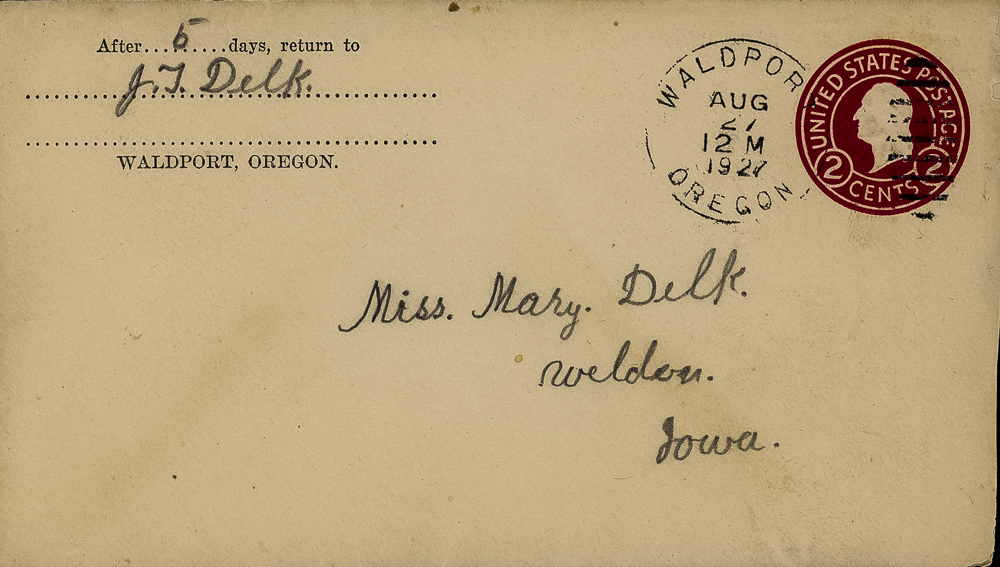 After...5.....days, return to
J.T. Delk.
WALDPORT, OREGON.
WALDPOR
AUG
27
12 M
1927
OREGON
UNITED STATES POSTAGE
2 2
CENTS
Miss. Mary. Delk.
Weldon.
Iowa.